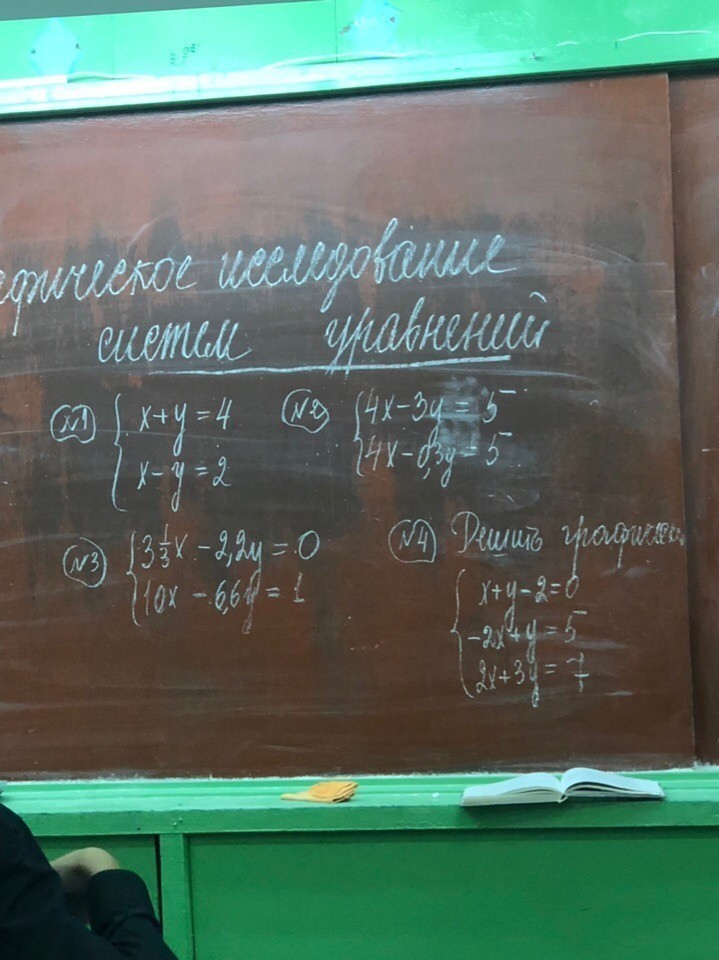 исследование
систем уравнений
№1 { x+y=4
x-y=2
№2 { 4x-3y=5
4x-0,3y=5
№3 { 3 1/3 x - 2,2y = 0
10x - 6,6y = 1
№4 Решить
{ x+y-2=0
-2x+y=5
2x+3y=7